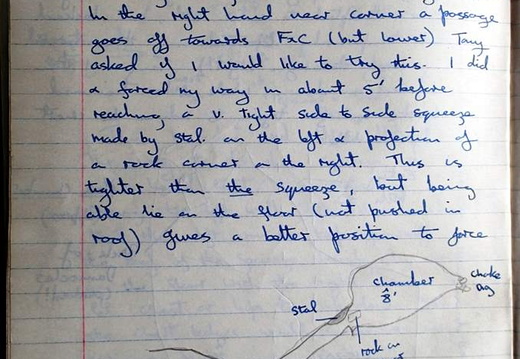 In the right hand near corner a passage
goes off towards FxC (but lower) Tony
asked if I would like to try this. I did
& forced my way in about 5' before
reaching a v. tight side to side squeeze
made by stal. on the left & projection of
a rock corner on the right. This is
tighter than the squeeze, but being
able lie on the floor (not pushed in
roof) gives a better position to force
chamber
8'
choke
stal
rock on
right